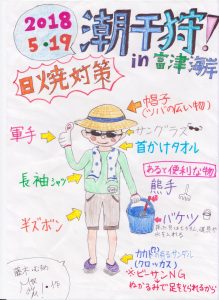 2018
5.19
潮干狩!
in 富津海岸
日焼対策
帽子
(ツバの広い物)
サングラス
軍手
首かけタオル
あると便利な物
長袖シャツ
熊手
バケツ
半ズボン
カカトの有るサンダル
(クロックス)
※ビーサンNG
ぬかるみで足をとられるから